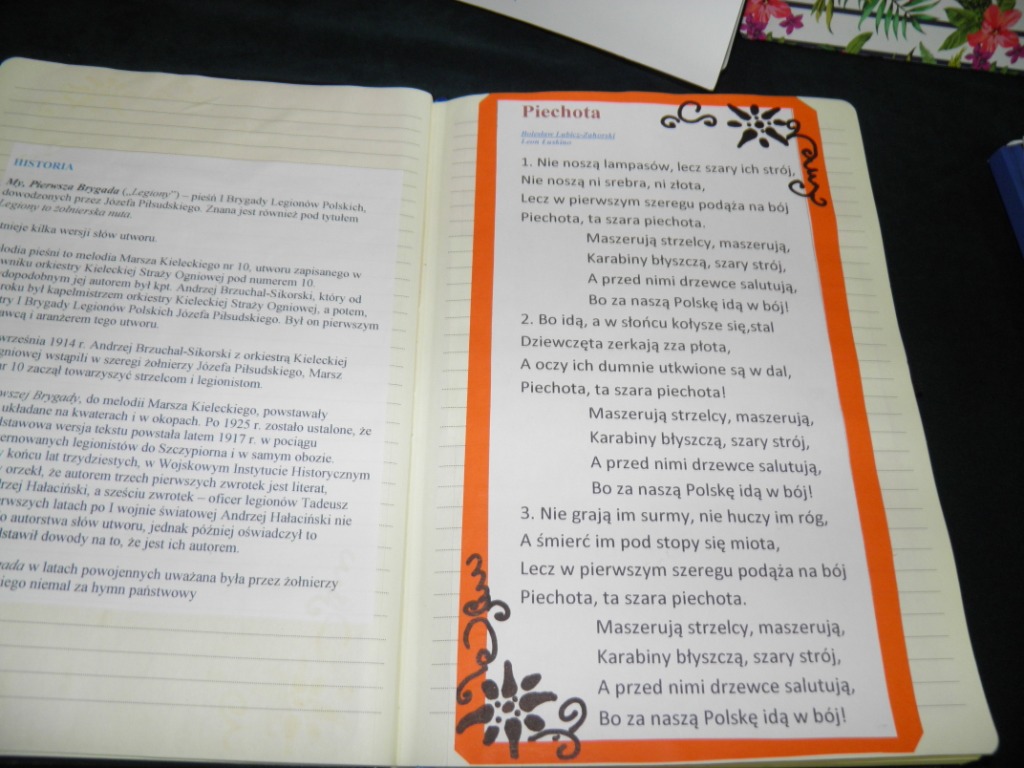 HISTORIA
My, Pierwsza Brygada („Legiony") – pieśń I Brygady Legionów Polskich,
dowodzonych przez Józefa Piłsudskiego. Znana jest również pod tytułem
Legiony to żołnierska nuta.
kilka wersji słów utworu.
pieśni to melodia Marsza Kieleckiego nr 10, utworu zapisanego w
orkiestry Kieleckiej Straży Ogniowej pod numerem 10.
jej autorem był kpt. Andrzej Brzuchal-Sikorski, który od
roku był kapelmistrzem orkiestry Kieleckiej Straży Ogniowej, a potem,
I Brygady Legionów Polskich Józefa Piłsudskiego. Był on pierwszym
i aranżerem tego utworu.
września 1914 r. Andrzej Brzuchal-Sikorski z orkiestrą Kieleckiej
wstąpili w szeregi żołnierzy Józefa Piłsudskiego, Marsz
nr 10 zaczął towarzyszyć strzelcom i legionistom.
Brygady, do melodii Marsza Kieleckiego, powstawały
układane na kwaterach i w okopach. Po 1925 r. zostało ustalone, że
wersja tekstu powstała latem 1917 r. w pociągu
legionistów do Szczypiorna i w samym obozie.
końcu lat trzydziestych, w Wojskowym Instytucie Historycznym
orzekł, że autorem trzech pierwszych zwrotek jest literat,
Hałaciński, a sześciu zwrotek – oficer legionów Tadeusz
latach po I wojnie światowej Andrzej Hałaciński nie
autorstwa słów utworu, jednak później oświadczył to
dowody na to, że jest ich autorem.
w latach powojennych uważana była przez żołnierzy
niemal za hymn państwowy
Piechota
Bolesław Lubicz-Zahorski
Leon Łuskino
1. Nie noszą lampasów, lecz szary ich strój,
Nie noszą ni srebra, ni złota,
Lecz w pierwszym szeregu podąża na bój
Piechota, ta szara piechota.
Maszerują strzelcy, maszerują,
Karabiny błyszczą, szary strój,
A przed nimi drzewce salutują,
Bo za naszą Polskę idą w bój!
2. Bo idą, a w słońcu kołysze się,stal
Dziewczęta zerkają zza płota,
A oczy ich dumnie utkwione są w dal,
Piechota, ta szara piechota!
Maszerują strzelcy, maszerują,
Karabiny błyszczą, szary strój,
A przed nimi drzewce salutują,
Bo za naszą Polskę idą w bój!
3. Nie grają im surmy, nie huczy im róg,
A śmierć im pod stopy się miota,
Lecz w pierwszym szeregu podąża na bój
Piechota, ta szara piechota.
Maszerują strzelcy, maszerują,
Karabiny błyszczą, szary strój,
A przed nimi drzewce salutują,
Bo za naszą Polskę idą w bój!